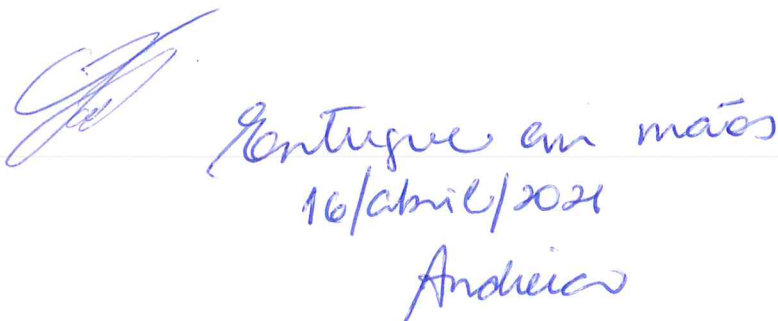 Entregue em mãos
16/abril/2021
Andreia